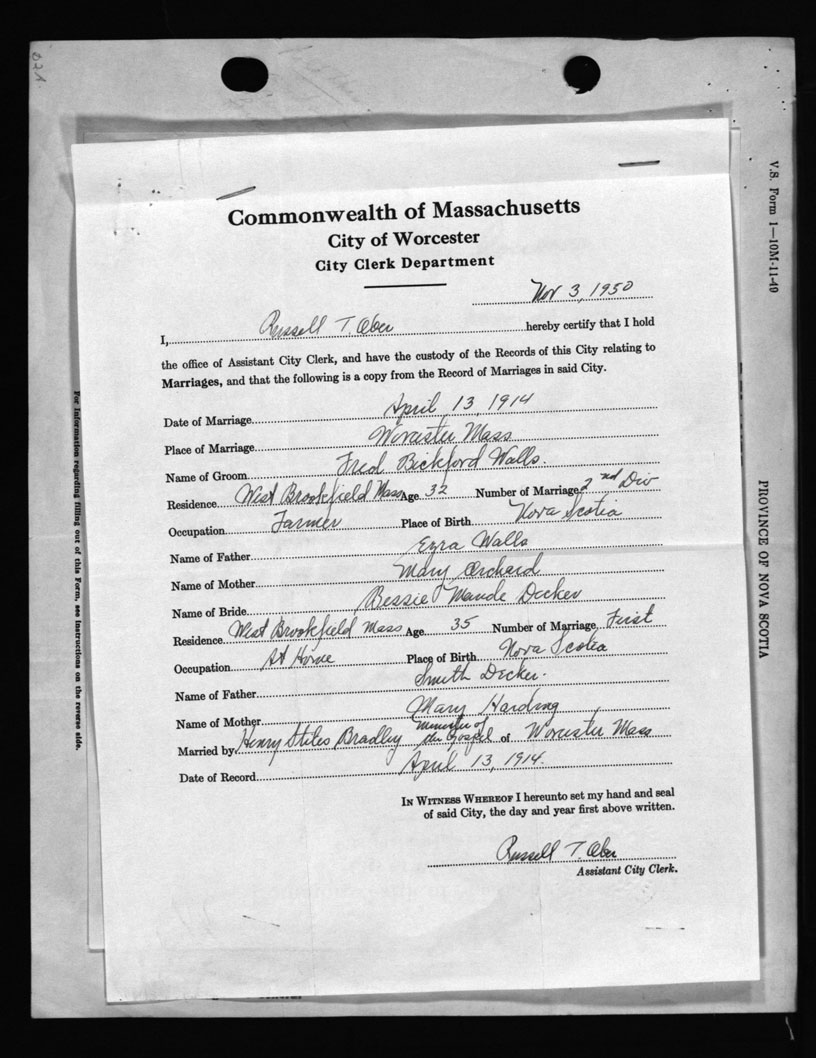 Commonwealth of Massachusetts
City of Worcester
City Clerk Department
Nov 3, 1950
I, Russell T. Ober hereby certify that I hold
the office of Assistant City Clerk, and have the custody of the Records of this City relating to
Marriages, and that the following is a copy from the Record of Marriages in said City.
Date of Marriage April 13, 1914
Place of Marriage Worcester Mass
Name of Groom Fred Bickford Walls
Residence West Brookfield Mass Age 32 Number of Marriage 2nd Div
Occupation Farmer Place of Birth Nova Scotia
Name of Father Ezra Walls
Name of Mother Mary Orchard
Name of Bride Bessie Maude Decker
Residence West Brookfield Mass Age 35 Number of Marriage First
Occupation At Home Place of Birth Nova Scotia
Name of Father Smith Decker.
Name of Mother Mary Harding
Married by Henry Stiles Bradley Minister of the Gospel of Worcester Mass
Date of Record April 13, 1914.
In Witness Whereof I hereunto set my hand and seal
of said City, the day and year first above written.
Russell T. Ober
Assistant City Clerk.
For Information regarding filling out of this Form, see instructions on the reverse side.
V.S. Form 1—10M-11-49
PROVINCE OF NOVA SCOTIA